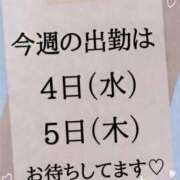 今週の出勤は
4日(水)
5日(木)
お待ちしてます♡